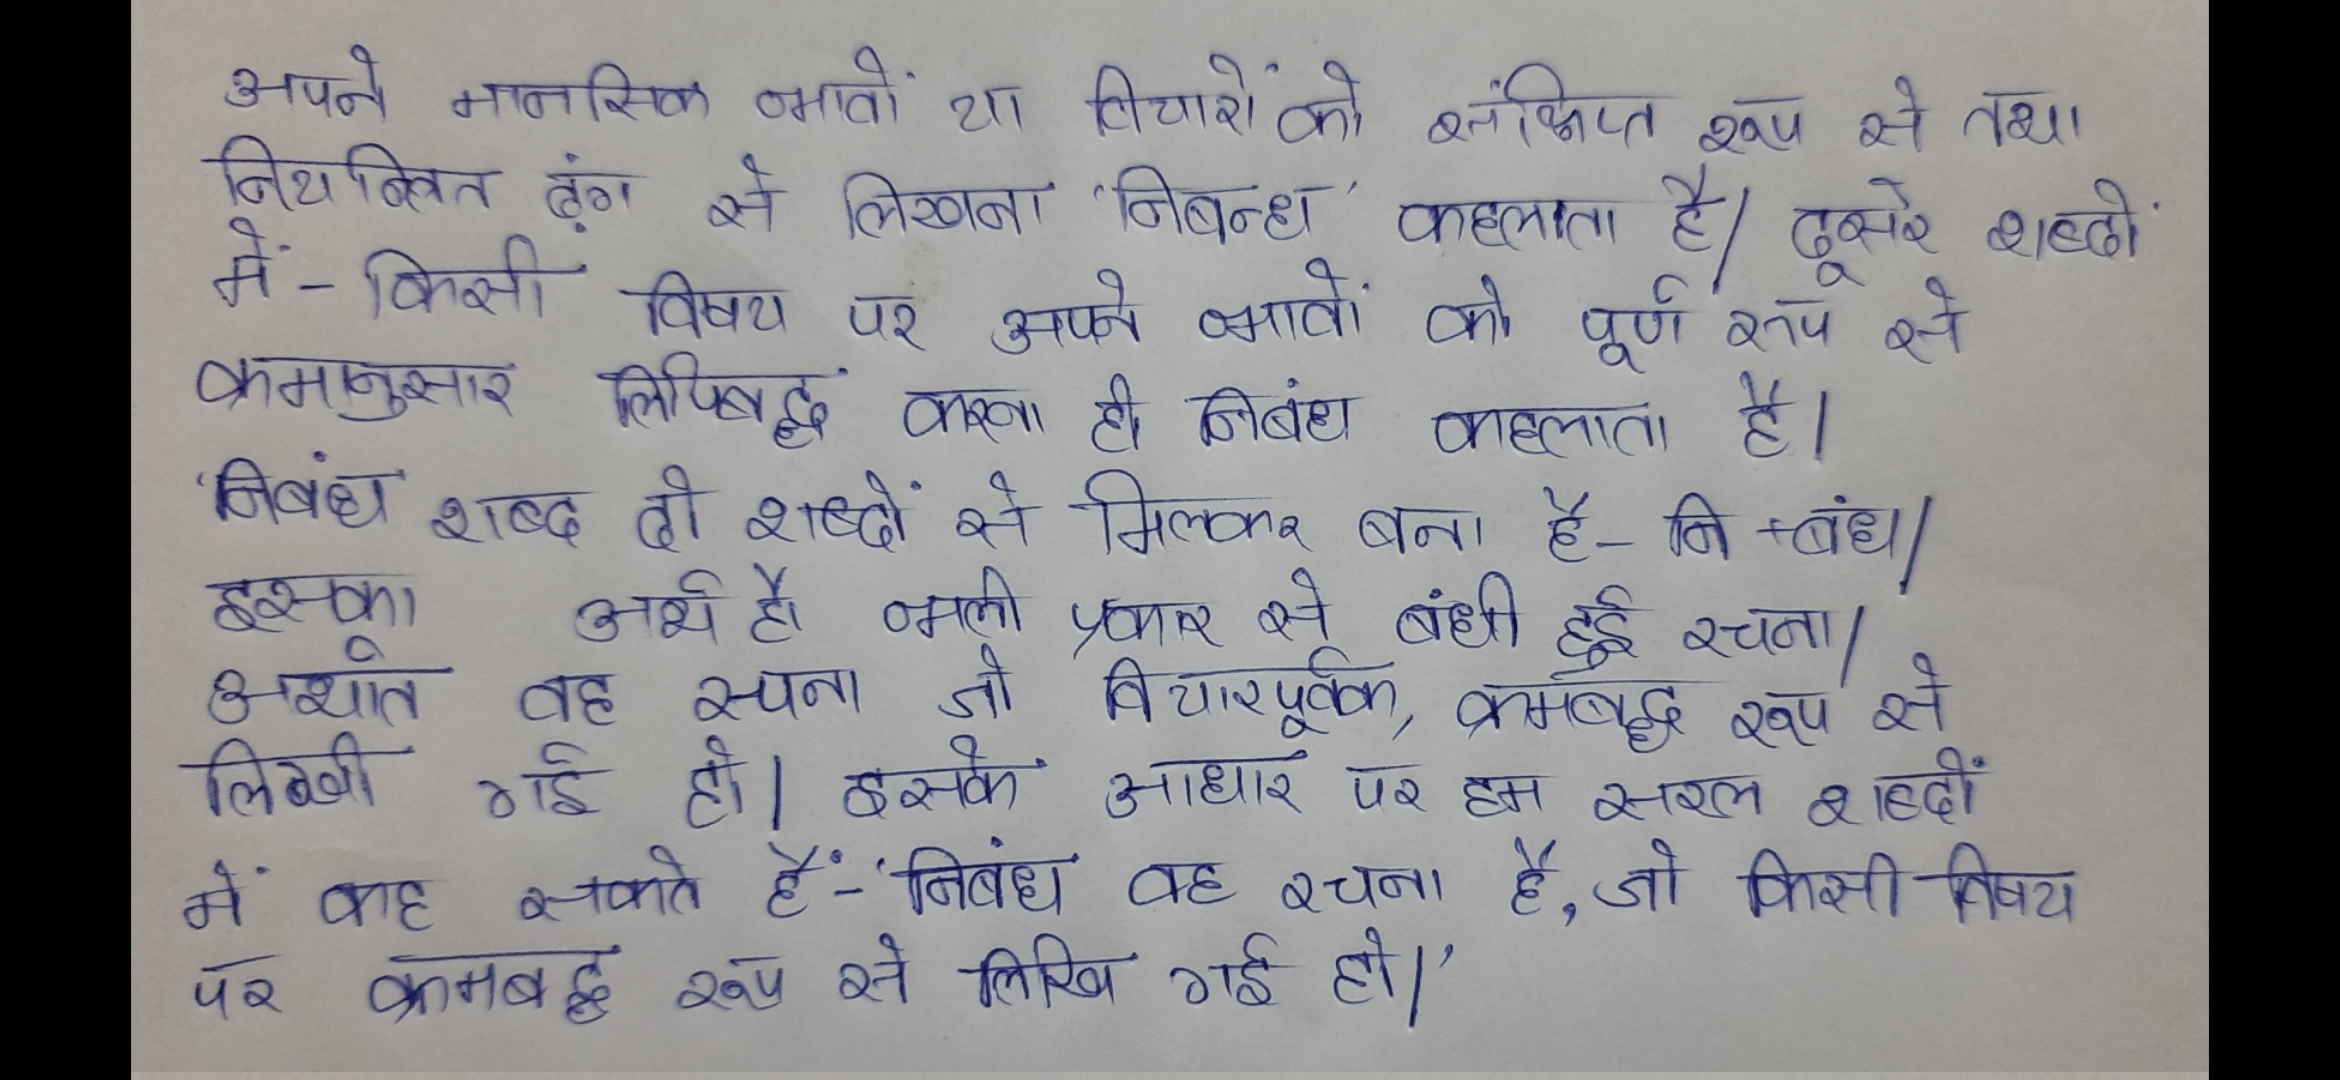 अपने मानसिक भावों या विचारों को संक्षिप्त रूप से तथा
नियन्त्रित ढ़ंग से लिखना 'निबन्ध' कहलाता है। दूसरे शब्दों
में - किसी विषय पर अपने भावों को पूर्ण रूप से
क्रमानुसार लिपिबद्ध करना ही निबंध कहलाता है।
'निबंध शब्द दो शब्दों से मिलकर बना है- नि +बंध।
इसका अर्थ है भली प्रकार से बंधी हुई रचना।
अर्थात वह रचना जो विचारपूर्वक, क्रमबद्ध रूप से
लिखी गई हो। इसके आधार पर हम सरल शब्दों
में कह सकते हैं- 'निबंध वह रचना है, जो किसी विषय
पर क्रमबद्ध रूप से लिखि गई हो।'